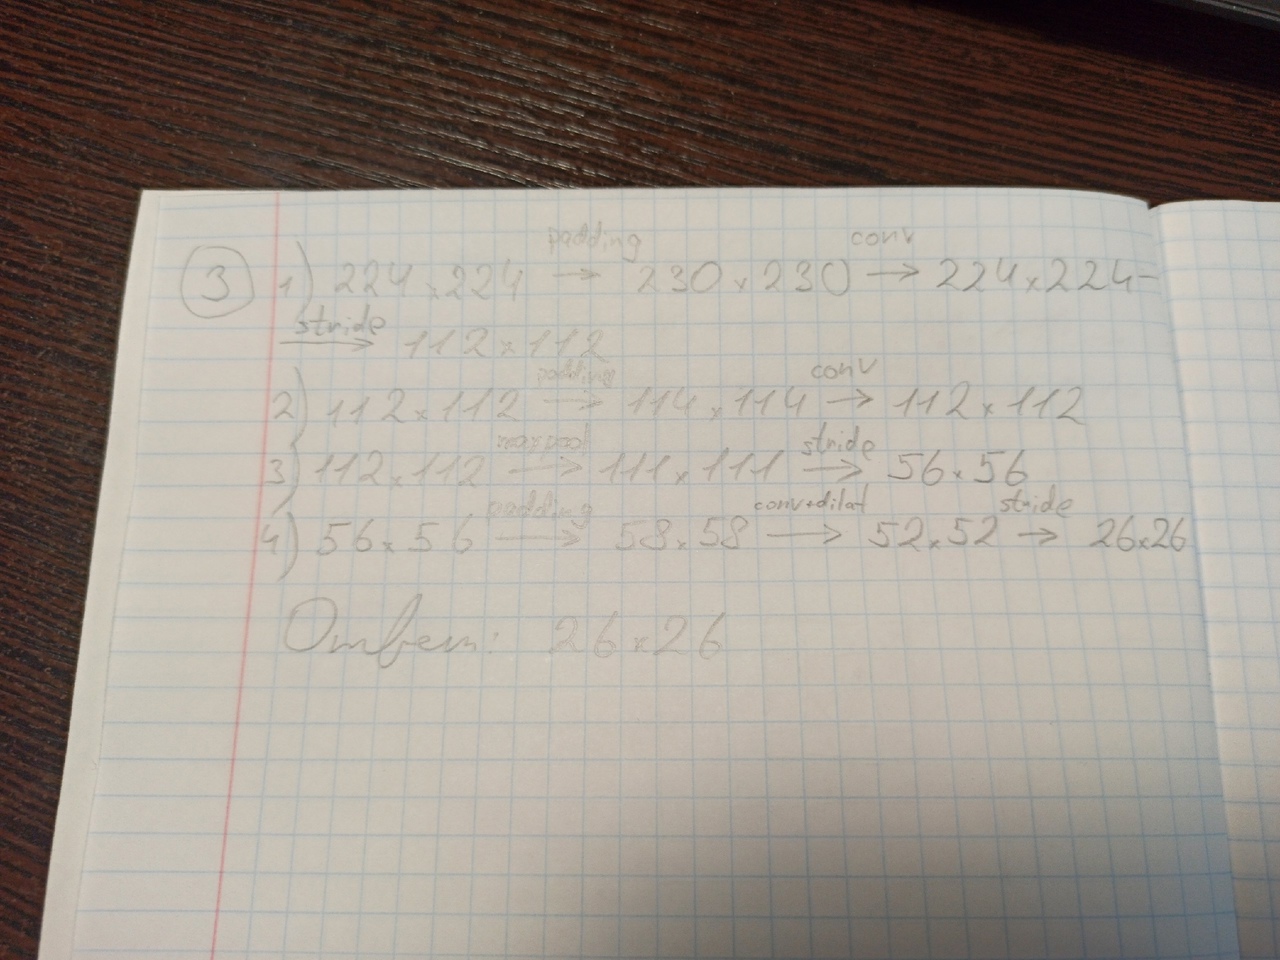 3 1) 224 x 224 padding → 230 x 230 conv → 224 x 224 -
stride → 112 x 112
2) 112 x 112 padding → 114 x 114 conv → 112 x 112
3) 112 x 112 maxpool → 111 x 111 stride → 56 x 56
4) 56 x 56 padding → 58 x 58 conv+dilat → 52 x 52 stride → 26 x 26
Ответ: 26 x 26